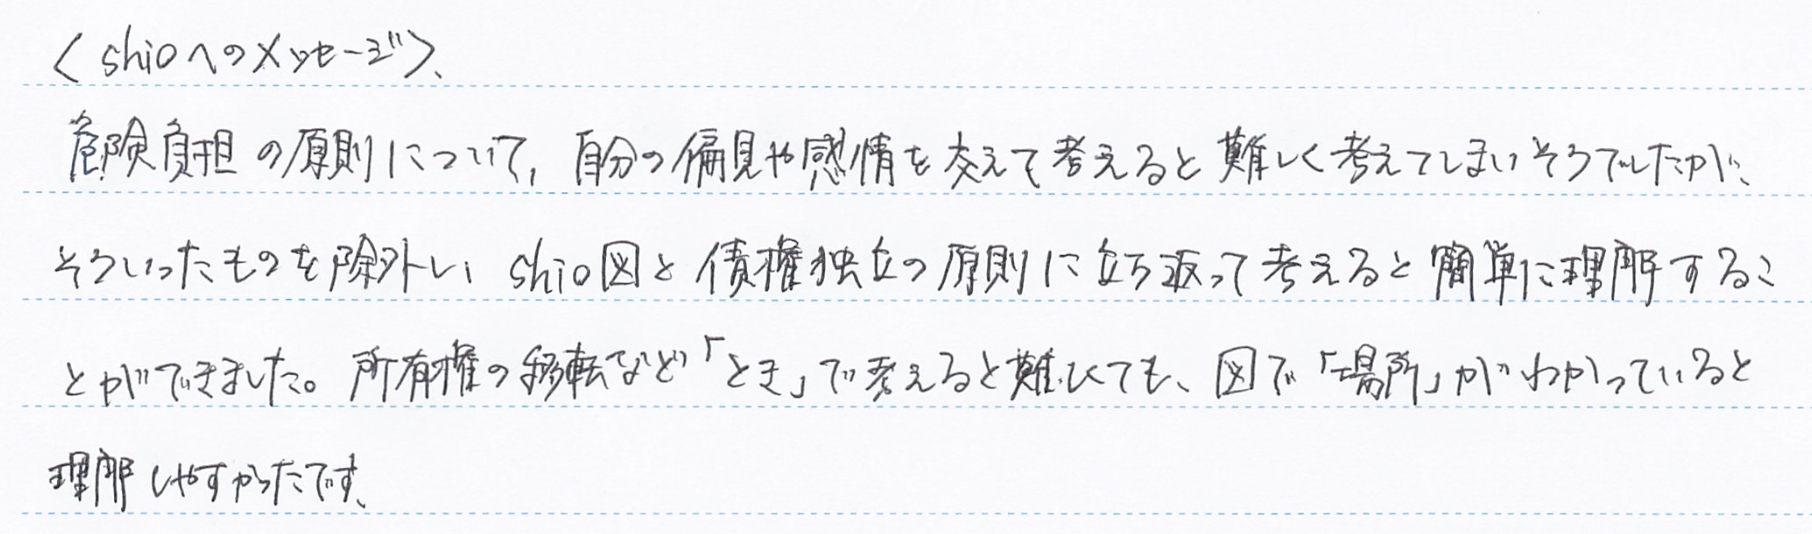 〈shioへのメッセージ〉、
危険負担の原則について、自分の偏見や感情を交えて考えると難しく考えてしまいそうでしたが、
そういったものを除外し、shio図と債権独立の原則に立ち返って考えると簡単に理解するこ
とができました。所有権の移転など「とき」で考えると難しくても、図で「場所」がわかっていると
理解しやすかったです、